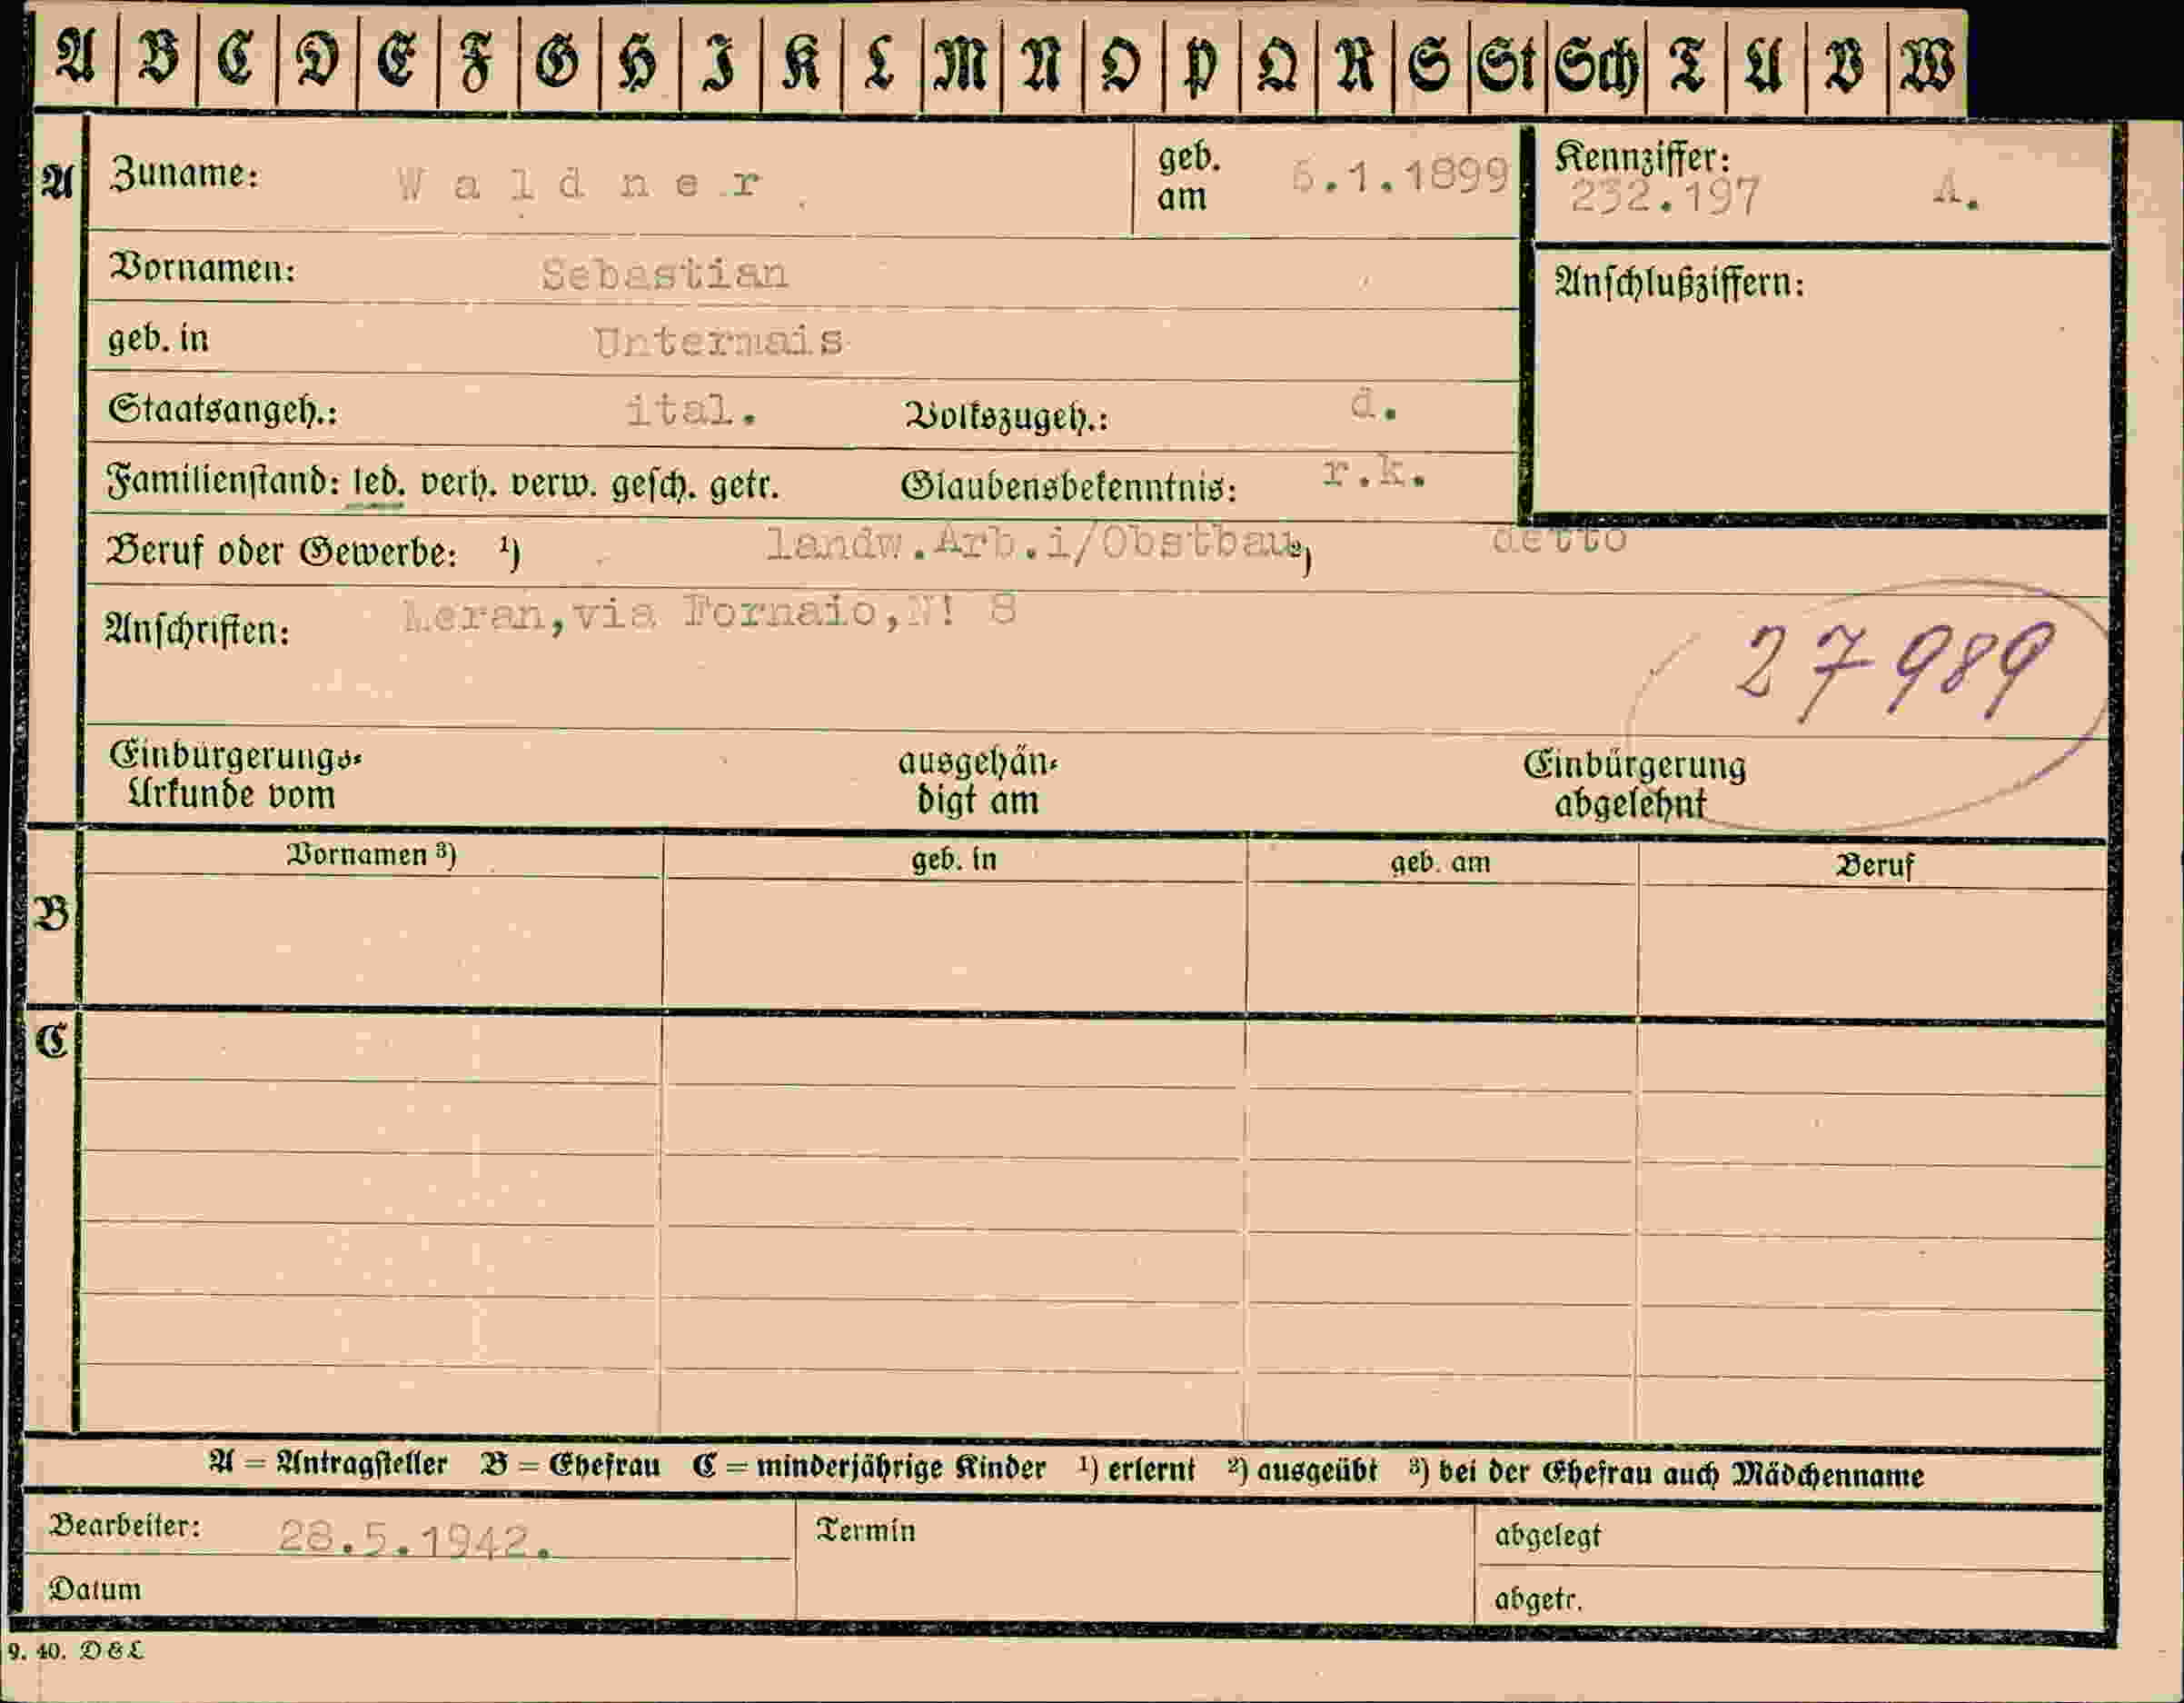 A B C D E F G H I K L M N O P Q R S St Sch T U V W
A Zuname: Waldner geb. am 6.1.1899 Kennziffer: 232.197 A.
Vornamen: Sebastian Anschlußziffern:
geb. in Untermais
Staatsangeh.: ital. Volkszugeh.: d.
Familienstand: led. verh. verw. gesch. getr. Glaubensbekenntnis: r.k.
Beruf oder Gewerbe: ¹) landw.Arb.i/Obstbau ²) detto
Anschriften: Meran,via Fornaio,N! 8
27989
Einbürgerungs-
Urkunde vom
ausgehän-
digt am
Einbürgerung
abgelehnt
Vornamen ³) geb. in geb. am Beruf
B
C
A = Antragsteller B = Ehefrau C = minderjährige Kinder ¹) erlernt ²) ausgeübt ³) bei der Ehefrau auch Mädchenname
Bearbeiter: 28.5.1942. Termin abgelegt
Datum abgetr.
9. 40. D & L